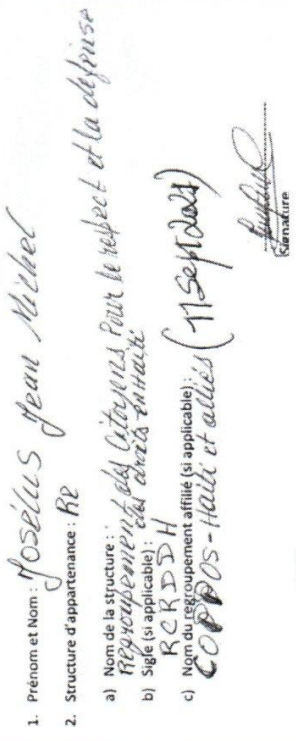 1. Prénom et Nom : Josélus Jean Michel
2. Structure d'appartenance : Re
a) Nom de la structure :
Regroupement des Citoyens Pour le respect et la défense
des droits en Haiti
b) Sigle (si applicable) :
RCRDDH
c) Nom du regroupement affilié (si applicable) :
COPPOS-Haiti et alliés (11 Sept 2021)
Signature